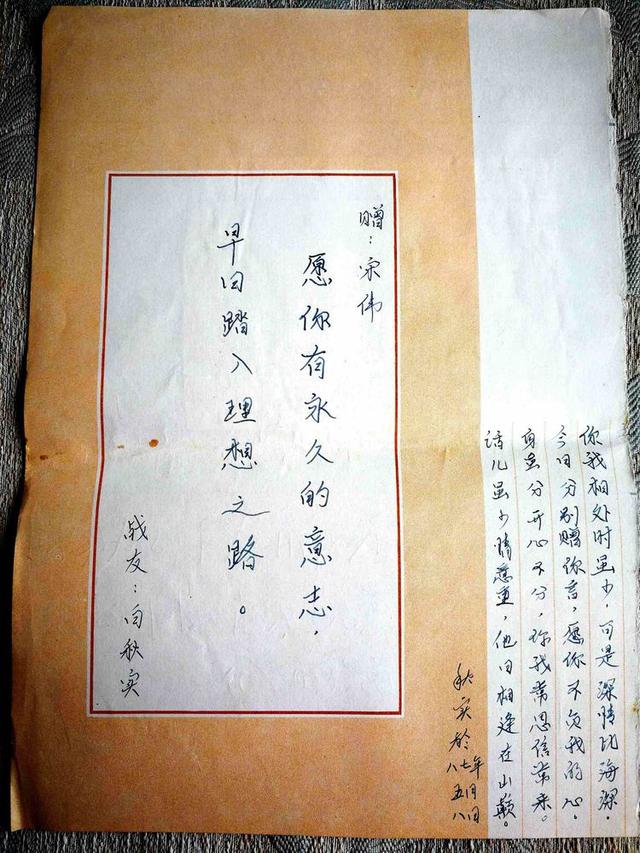 赠：宗伟
愿你有永久的意志，
早日踏入理想之路。
战友：白秋实
你我相处时虽少，可是深情比海深．
今日分别赠你言，愿你不负我的心．
身虽分开心不分，你我常思信常来．
话儿虽少情意重，他日相逢在山巅。
秋实於
八七年
五月
八日